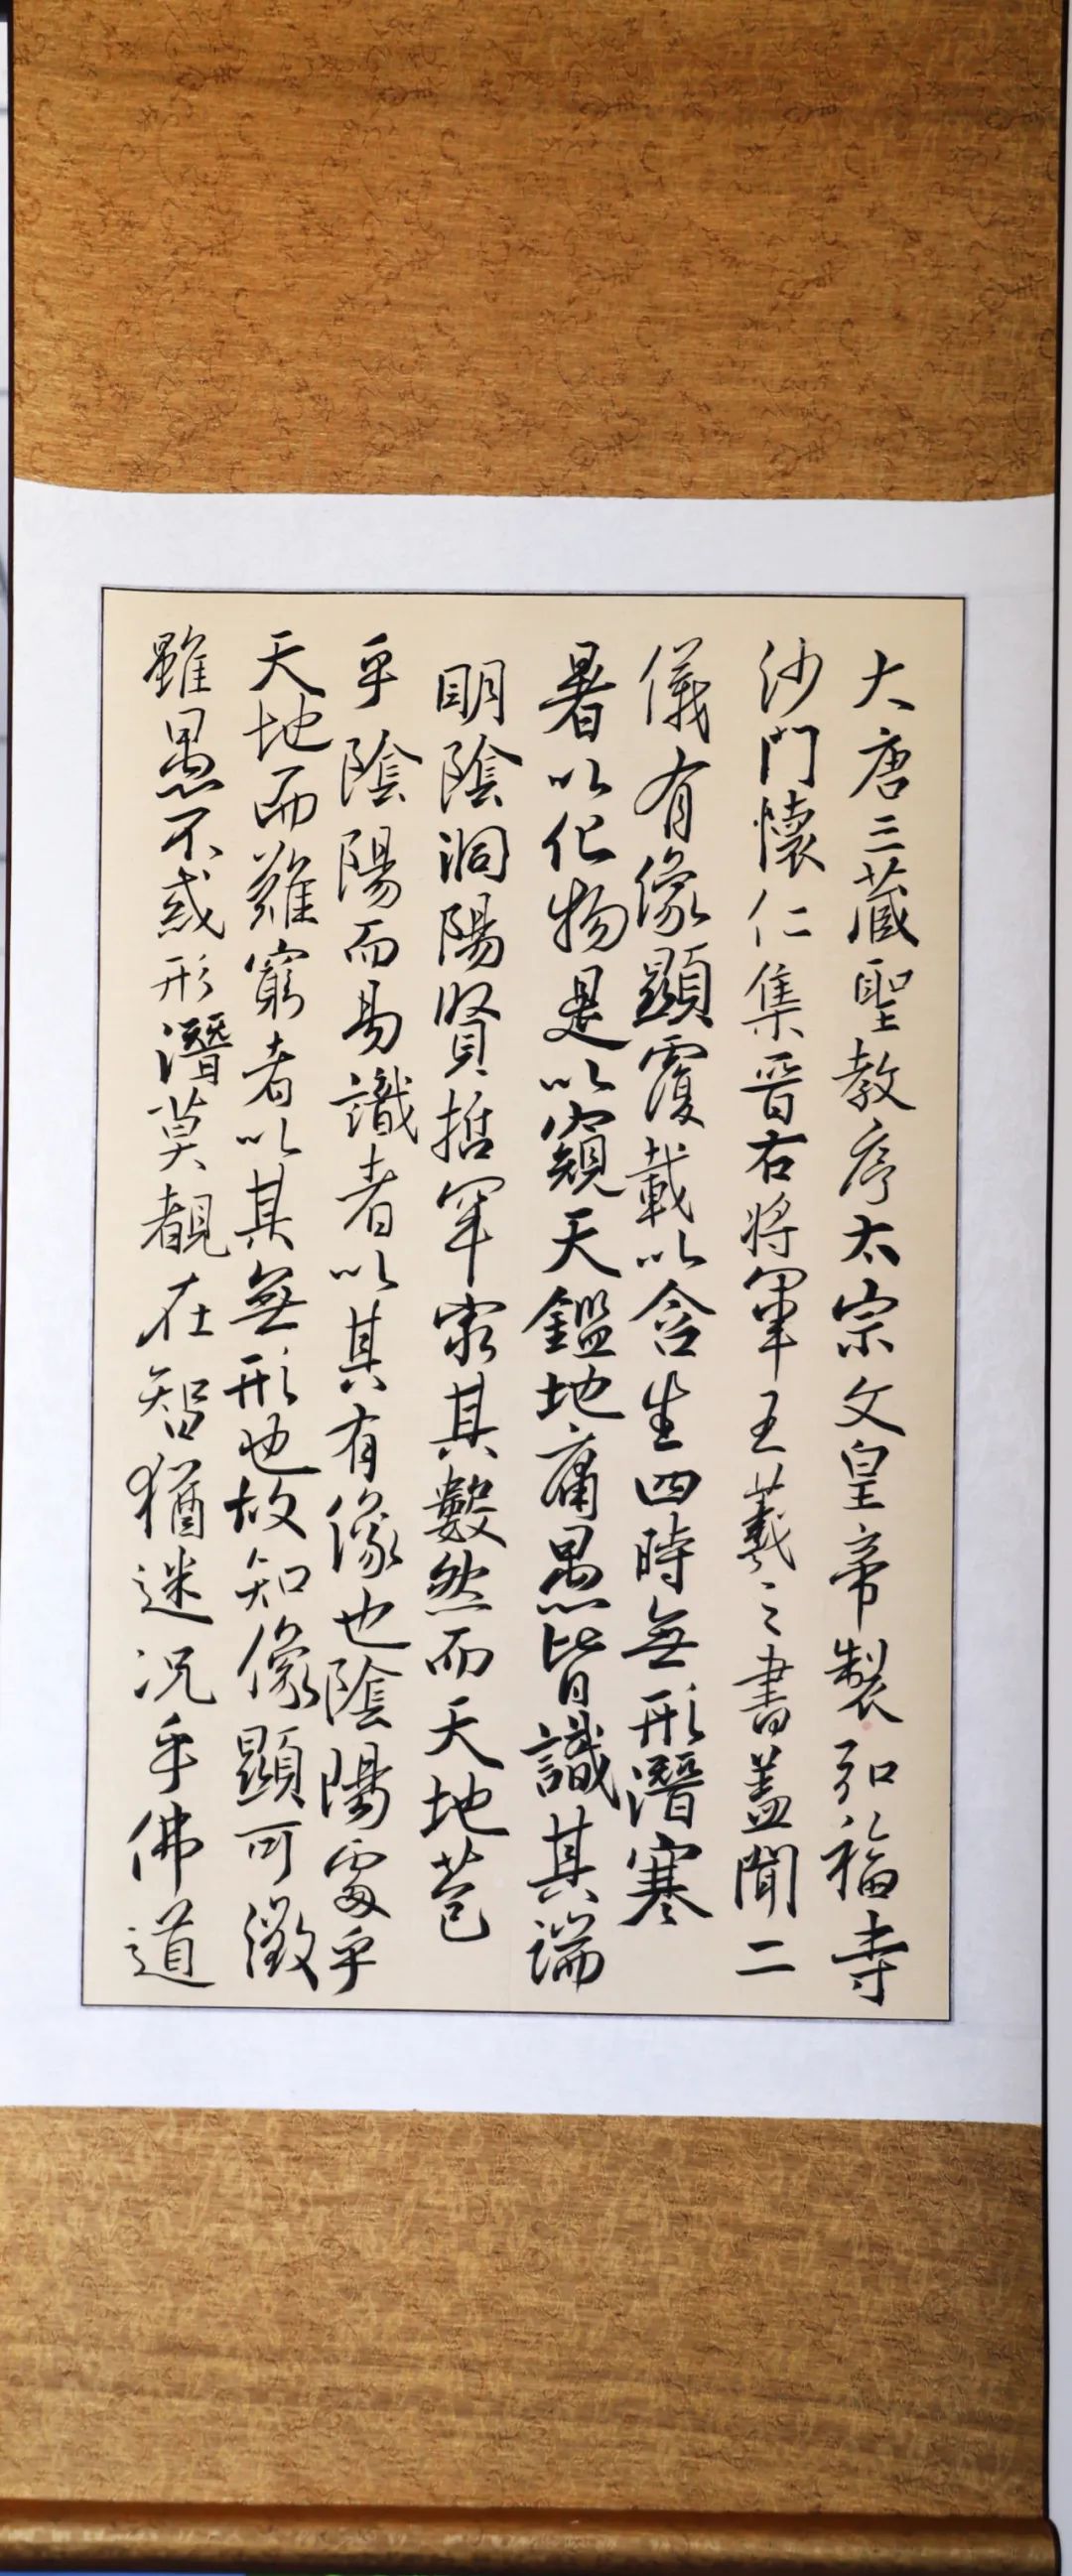 大唐三藏聖教序太宗文皇帝製弘福寺
沙門懷仁集晉右將軍王羲之書蓋聞二
儀有像顯覆載以含生四時無形潛寒
暑以化物是以窺天鑑地庸愚皆識其端
明陰洞陽賢哲罕窮其數然而天地苞
乎陰陽而易識者以其有像也陰陽處乎
天地而難窮者以其無形也故知像顯可徵
雖愚不惑形潛莫覩在智猶迷况乎佛道